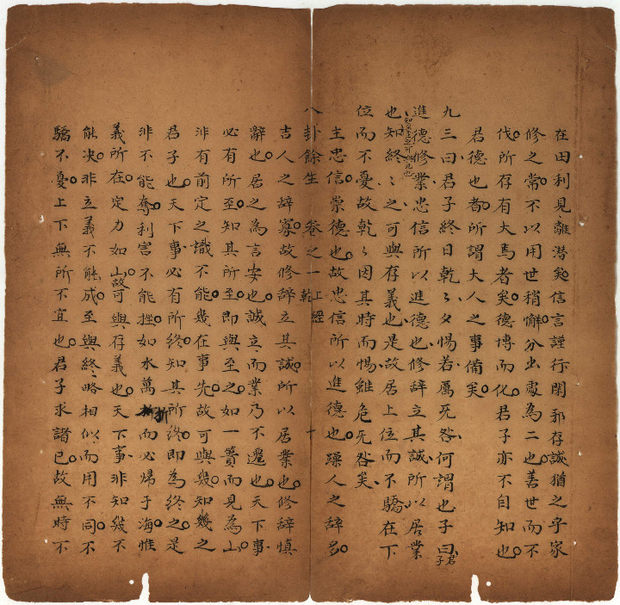 在田利見雖潜信言謹行閑邪存誠猶之守家
修之常不以用世稍懈分出處為二也善世而不
伐所存有大焉者矣德博而化君子亦不自知也
君德也者所謂大人之事備矣
九三曰君子終日乾〻夕惕若厲无咎何謂也子曰君子
進德修業忠信所以進德也修辭立其誠所以居業
也知至至之可與幾也知終〻之可與存義也是故居上位而不驕在下
位而不憂故乾〻因其時而惕雖危无咎矣
主忠信崇德也故忠信所以進德也躁人之辭多
八卦餘生 卷之一 上經 乾 十
吉人之辭寡故修辭立其誠所以居業也修辭慎
辭也居之為言安也誠立而業乃不遷也天下事
必有所至知其所至即與至之如一簣而見為山
非有前定之識不能幾在事先故可與幾知幾之
君子也天下事必有所終知其所終即為終之是
非不能奪利害不能挫如水萬折而必歸于海惟
義所在定力如山故可與存義也天下事非知幾不
能决非立義不能成至與終略相似而用不同不
驕不憂上下無所不宜也君子求諸已故無時不